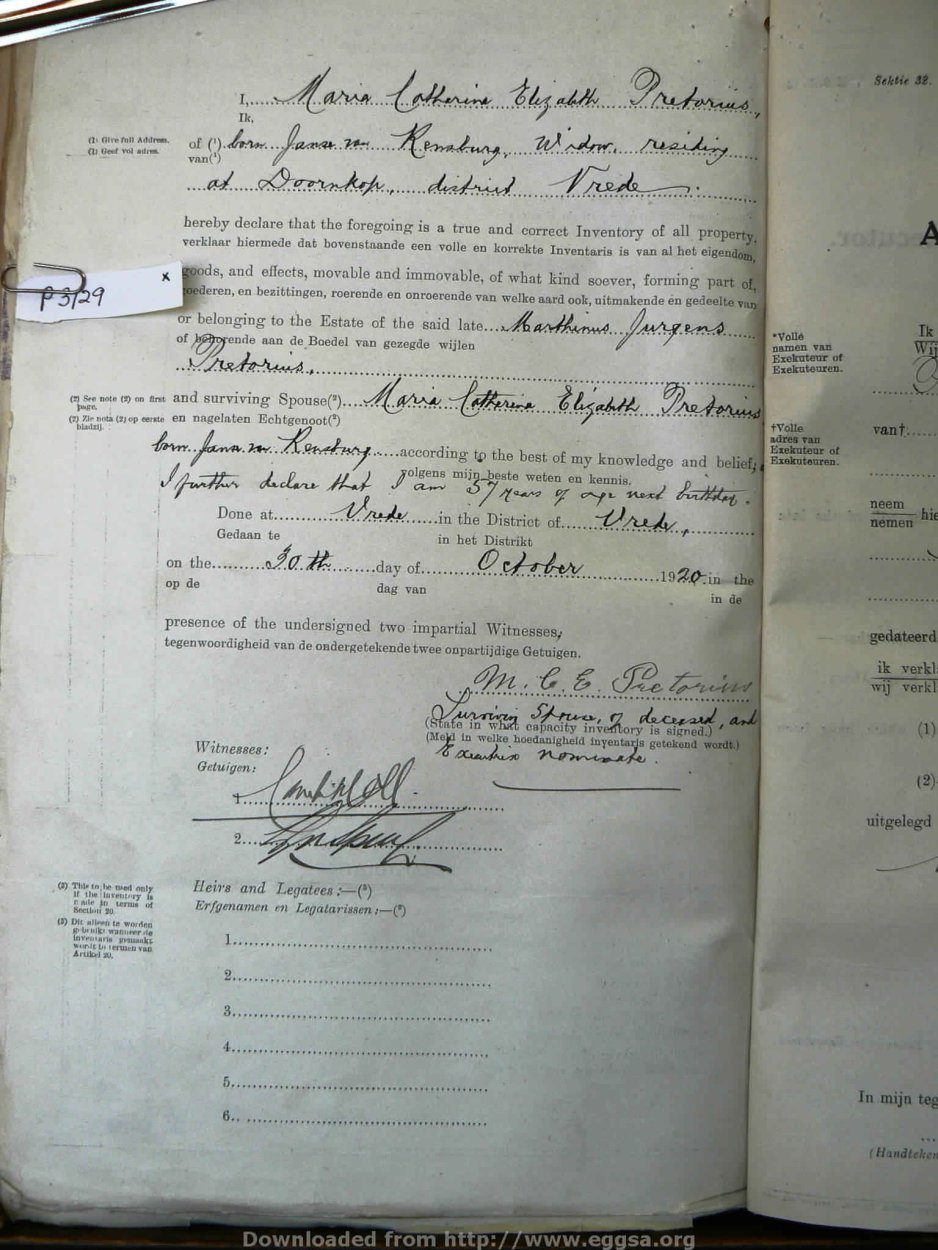 Sektie 32.
I, Maria Catherina Elizabeth Pretorius,
Ik,
(1) Give full Address.
(1) Geef vol adres.
of (1) born Janse van Rensburg, Widow, residing
van(1)
at Doornkop, district Vrede.
hereby declare that the foregoing is a true and correct Inventory of all property,
verklaar hiermede dat bovenstaande een volle en korrekte Inventaris is van al het eigendom,
goods, and effects, movable and immovable, of what kind soever, forming part of,
goederen, en bezittingen, roerende en onroerende van welke aard ook, uitmakende en gedeelte van
P 3/29
x
or belonging to the Estate of the said late Marthinus Jurgens
of behorende aan de Boedel van gezegde wijlen
Pretorius,
(2) See note (2) on first page.
(2) Zie nota (2) op eerste bladzij.
and surviving Spouse(2) Maria Catherina Elizabeth Pretorius
en nagelaten Echtgenoot(2)
born Janse van Rensburg according to the best of my knowledge and belief;
volgens mijn beste weten en kennis.
I further declare that I am 57 years of age next birthday.
Done at Vrede in the District of Vrede,
Gedaan te in het Distrikt
on the 30th day of October 1920 in the
op de dag van in de
presence of the undersigned two impartial Witnesses,
tegenwoordigheid van de ondergetekende twee onpartijdige Getuigen.
M. C. E. Pretorius
Surviving Spouse, of deceased, and
(State in what capacity inventory is signed.)
(Meld in welke hoedanigheid inventaris getekend wordt.)
Executrix nominate.
Witnesses:
Getuigen:
1
2
(3) This to be used only if the inventory is made in terms of Section 20.
(3) Dit alleen te worden gebruikt wanneer de inventaris gemaakt wordt in termen van Artikel 20.
Heirs and Legatees:—(3)
Erfgenamen en Legatarissen:—(3)
1
2
3
4
5
6
A
*Volle
namen van
Exekuteur of
Exekuteuren.
Ik
Wij
†Volle
adres van
Exekuteur of
Exekuteuren.
van†
neem
nemen
hie
gedateerd
ik verkl
wij verkl
(1)
(2)
uitgelegd
In mijn teg
(Handteken
Downloaded from http://www.eggsa.org